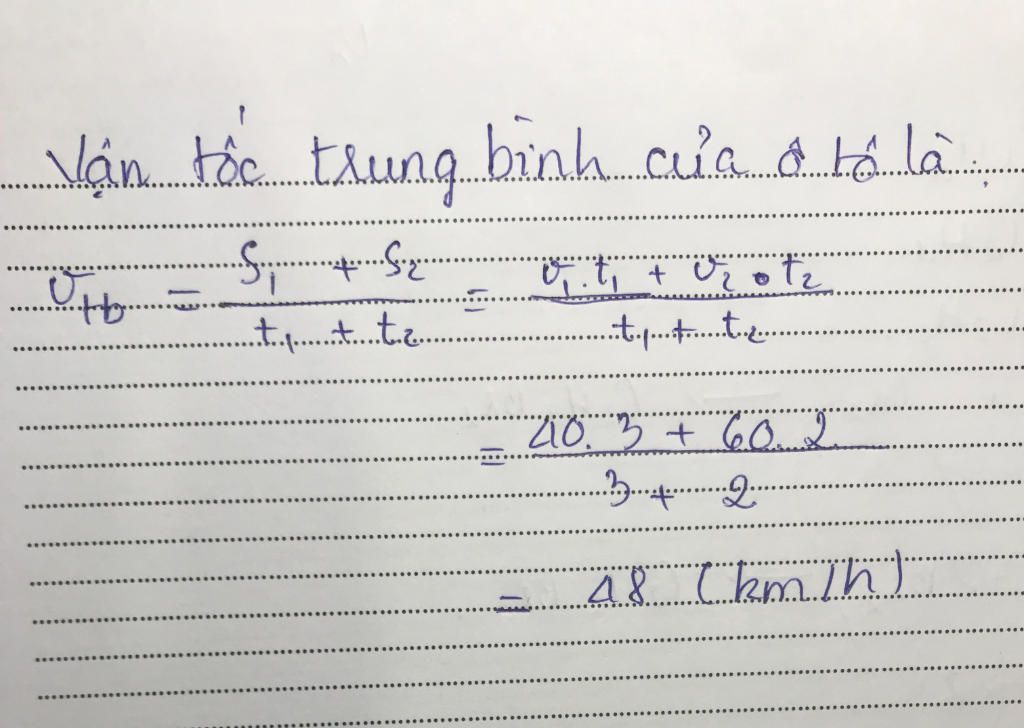 Vận tốc trung bình của ô tô là:
v_tb = (S₁ + S₂)/(t₁ + t₂) = (v₁.t₁ + v₂.t₂)/(t₁ + t₂)
= (40.3 + 60.2)/(3 + 2)
= 48 (km/h)